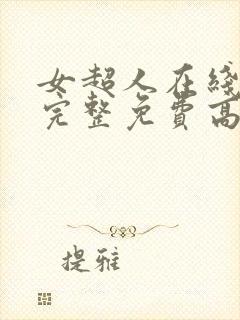 女超人在綫
完整免費高
提雅